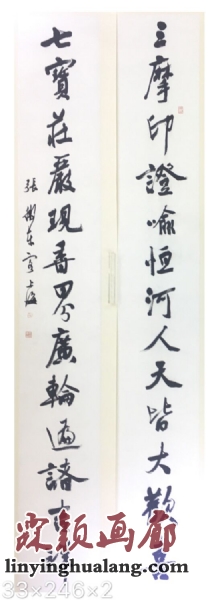 三摩印證喻恒河人天皆大歡喜
七寶莊嚴現香界廣輪遍諸吉祥
張
上海
霖颖画廊
linyinghualang.com
33×246×2